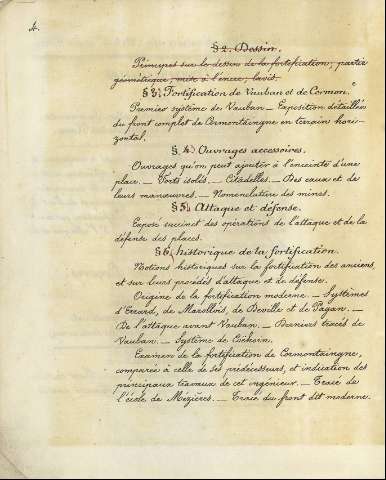 4.
§ 2. Dessin.
Principes sur le dessin de la fortification; partie
géométrique; mise à l'encre; lavis.
§ 3. Fortification de Vauban et de Cormon.ⁿᵉ
Premier système de Vauban — Exposition détaillée
du front complet de Cormontaingne en terrain hori-
zontal.
§ 4. Ouvrages accessoires.
Ouvrages qu'on peut ajouter à l'enceinte d'une
place. — Forts isolés. — Citadelles. — Des eaux et de
leurs manœuvres. — Nomenclature des mines.
§ 5. Attaque et défense.
Exposé succinct des opérations de l'attaque et de la
défense des places.
§ 6. historique de la fortification.
Notions historiques sur la fortification des anciens,
et sur leurs procédés d'attaque et de défense.
Origine de la fortification moderne. — Systèmes
d'Errard, de Marollois, de Deville et de Pagan. —
De l'attaque avant Vauban. — Derniers tracés de
Vauban. — Système de Coëhorn.
Examen de la fortification de Cormontaingne,
comparée à celle de ses prédécesseurs, et indication des
principaux travaux de cet ingénieur. — Tracé de
l'école de Mézières. — Tracé du front dit moderne.